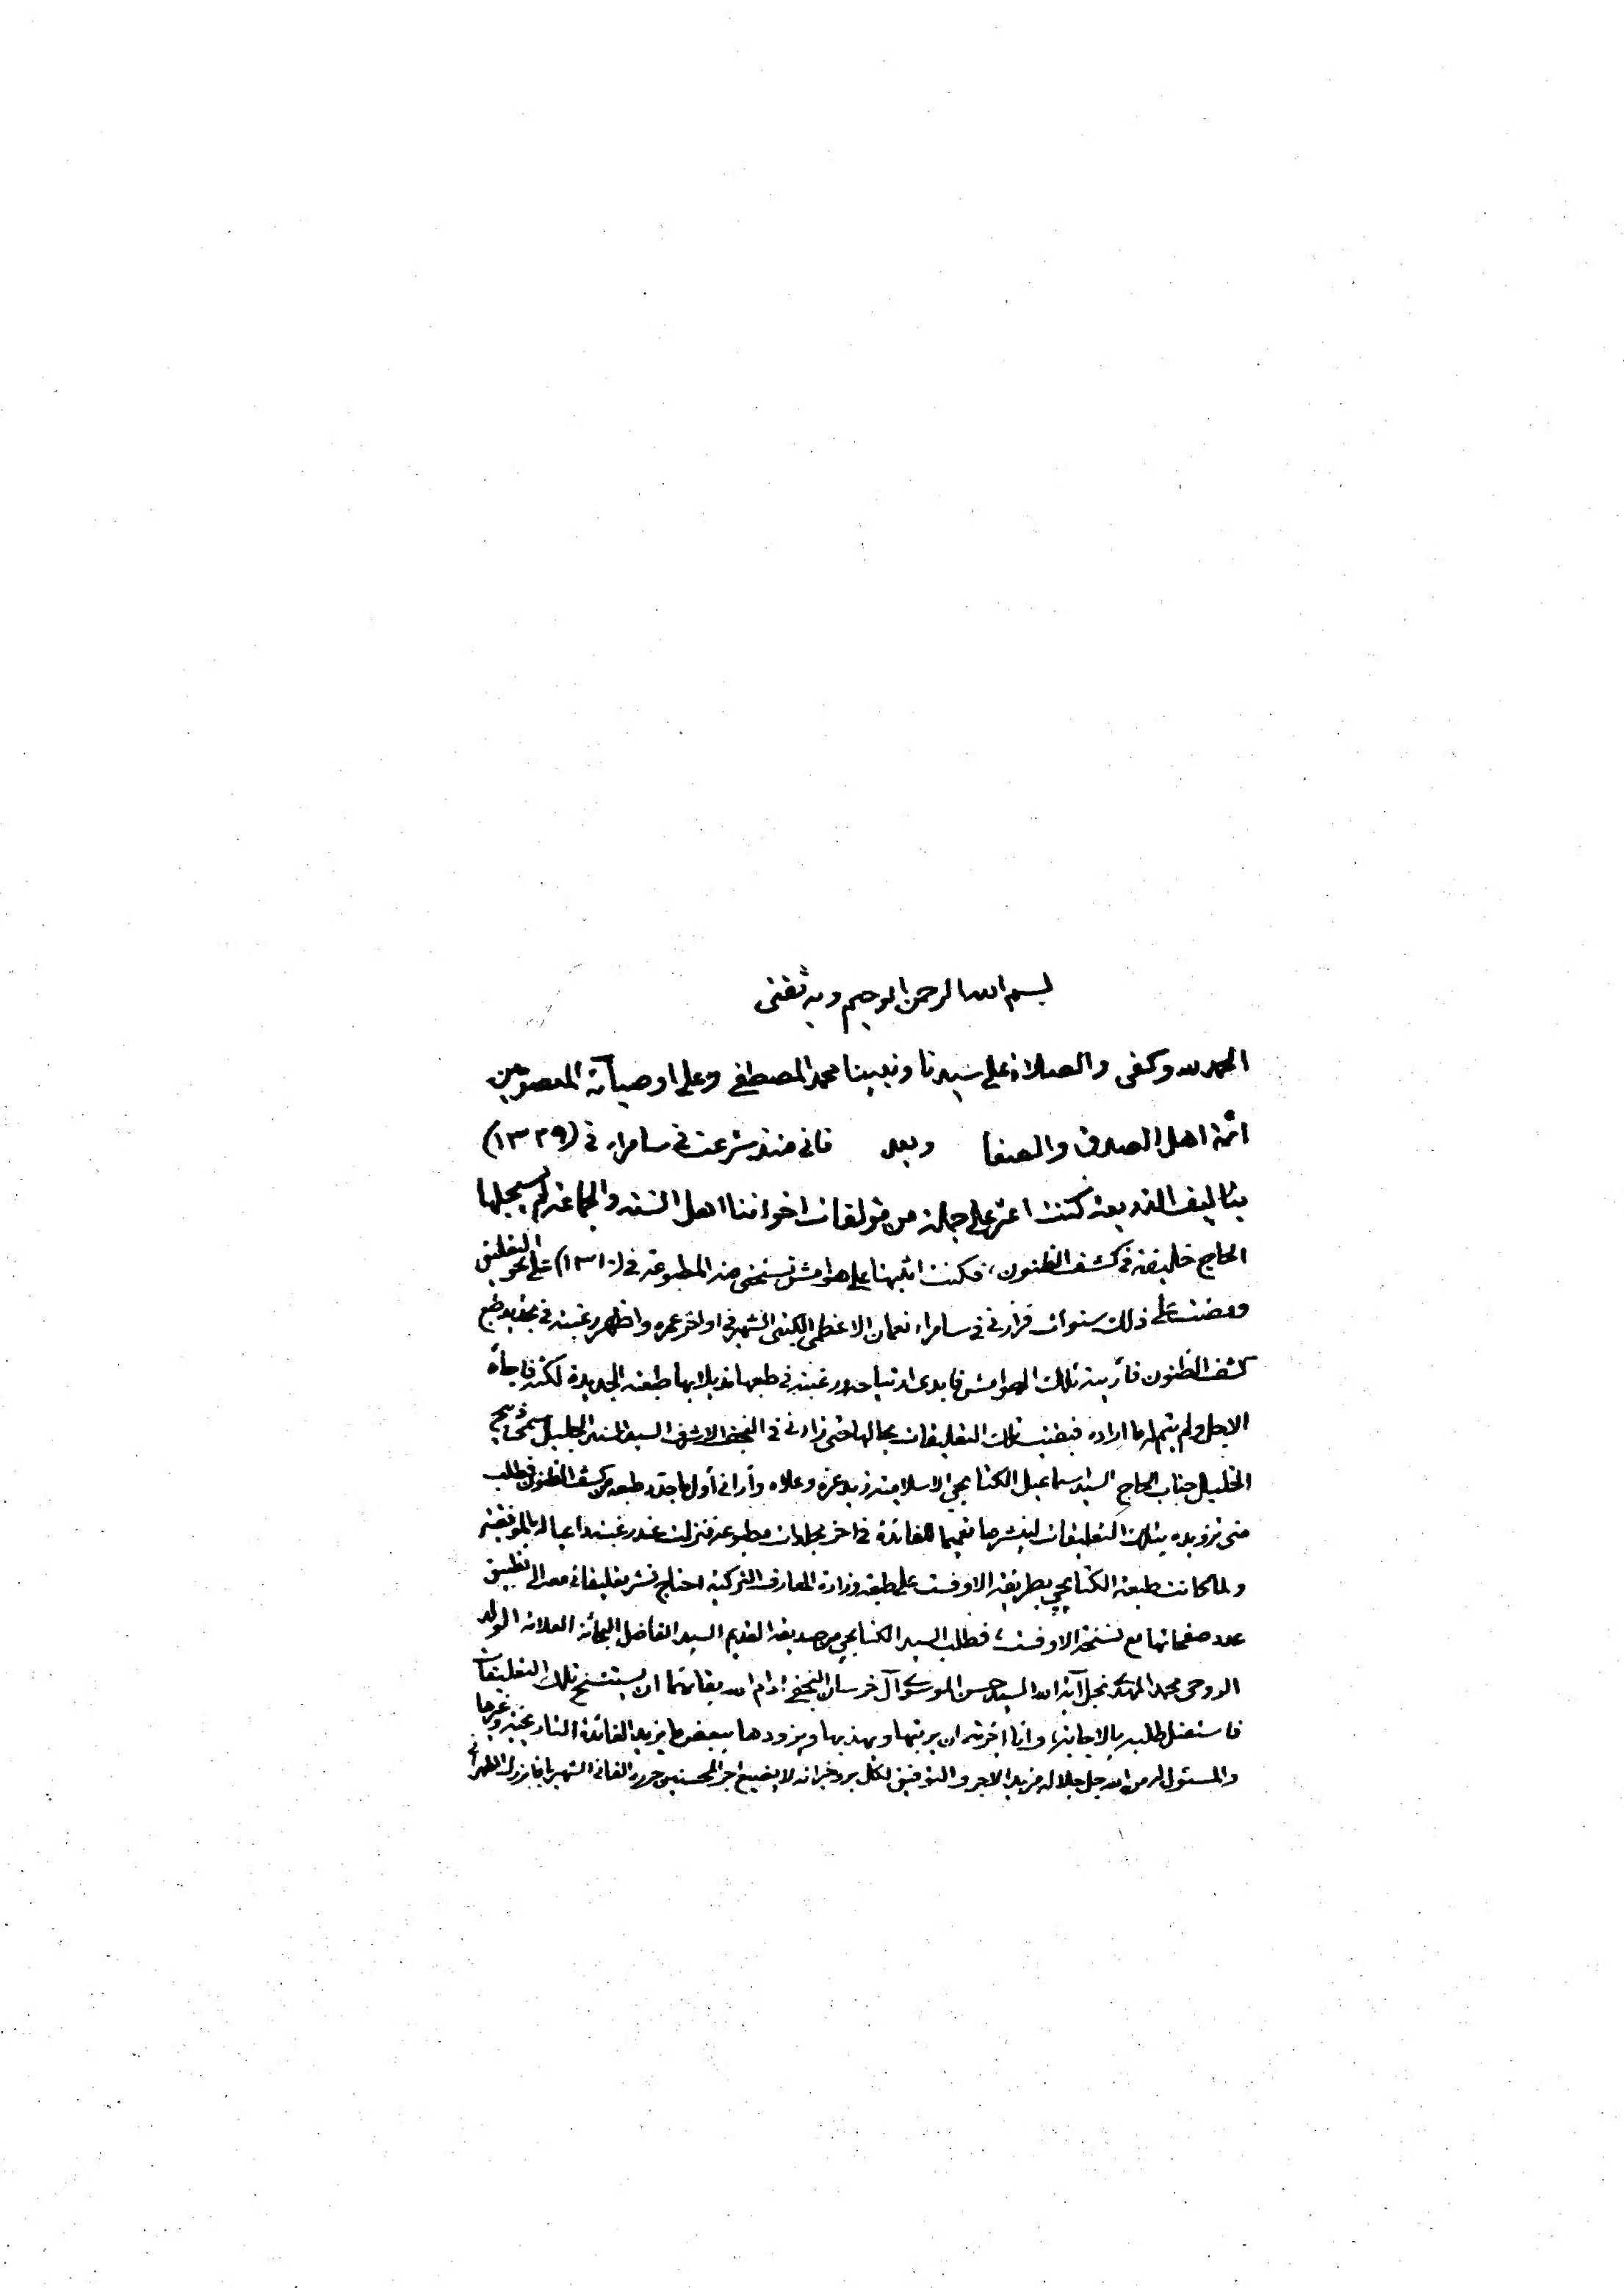 بسم الله الرحمن الرحيم وبه ثقتي
الحمد لله وكفى والصلاة على سيدنا ونبينا محمد المصطفى وعلى اوصيائه المعصومين
ائمة اهل الصدق والصفا وبعد فانى منذ شرعت في سامراء في (١٣٢٩)
بتاليف الذريعة كنت اعثر على جملة من مؤلفات اخواننا اهل السنة والجماعة لم يسجلها
الحاج خليفة في كشف الظنون، فكنت اثبتها على هوامش نسختى منه المطبوعة في (١٣١٠) على نحو التعليق
ومضت على ذلك سنوات فزارنى في سامراء نعمان الاعظمى الكتبى الشهير في اواخر عمره واظهر رغبته في تجديد طبع
كشف الظنون فأريته تلك الهوامش فابدى ارتياحه ورغبته في طبعها مذيلا بها طبعته الجديدة لكنه فاجأه
الاجل ولم يتم له ما اراده فبقيت تلك التعليقات بحالها حتى زارنى في النجف الاشرف السيد السند الجليل سمى ذبيح
الخليل جناب الحاج السيد اسماعيل الكتابچى الاسلامية زيد عزه وعلاه وأرانى أول ما جدد طبعه من كشف الظنون فطلب
منى تزويده بتلك التعليقات لينشرها تعميما للفائدة في اخر مجلدات مطبوعه فنزلت عند رغبته داعيا له بالموفقية
ولما كانت طبعة الكتابچى بطريقة الاوفست على طبعة وزارة المعارف التركية احتاج نشر تعليقاتى معه الى تطبيق
عدد صفحاتها مع نسخة الاوفست، فطلب السيد الكتابچى من صديقه القديم السيد الفاضل البحاثة العلامة الولد
الروحى محمد المهدى نجل آية الله السيد حسن الموسوى آل خرسان النجفى ادام الله بقائهما ان يستنسخ تلك التعليقات
فاستقبل طلبه بالاجابة، وانا اجزته ان يرتبها ويهذبها ويزودها ببعض ما يزيد الفائدة التاريخية وغيرها
والمسئول له من الله جل جلاله مزيد الاجر والتوفيق لكل بر وخير انه لا يضيع اجر المحسنين حرره الفانى الشهير باقا بزرك الطهرانى